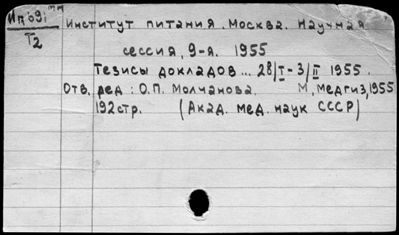 Ип 091
T2
Институт питания. Москва. Научная
сессия, 9-я. 1955
Тезисы докладов... 28/I-3/II 1955.
Отв. ред: О.П. Молчанова. М, Медгиз, 1955
192стр. (Акад. мед. наук СССР)